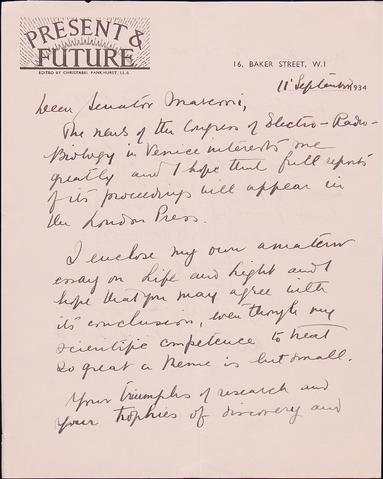 PRESENT &
FUTURE
EDITED BY CHRISTABEL PANKHURST, LL.B.
16, BAKER STREET, W.1
11 September 1934
Dear Senator Marconi,
The news of the Congress of Electro-Radio-
Biology in Venice interests me
greatly and I hope that full reports
of its proceedings will appear in
the London Press.
I enclose my own amateur
essay on Life and Light and I
hope that you may agree with
its conclusion, even though my
scientific competence to treat
so great a theme is but small.
Your triumphs of research and
your trophies of discovery and